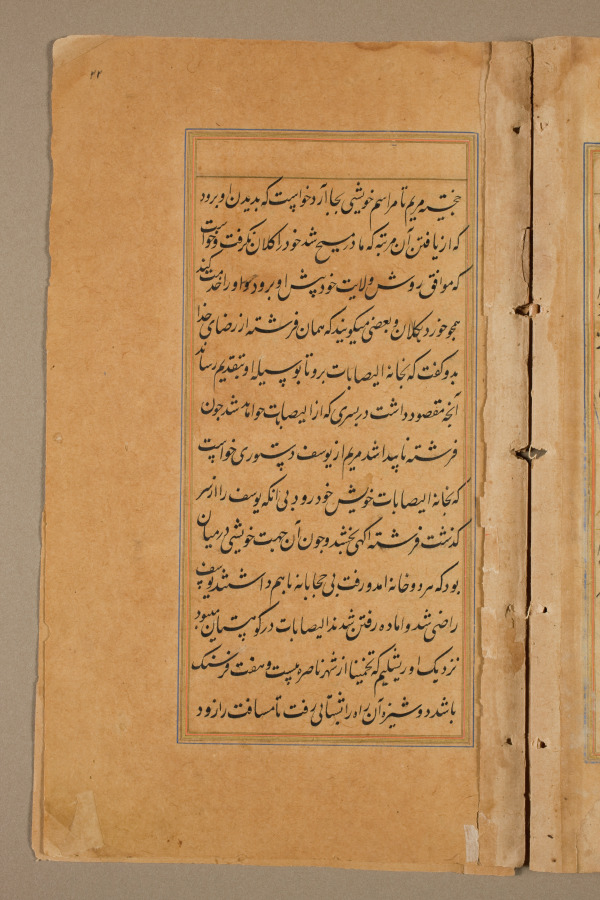 ۲۲
خجسته مریم تا مراسم خویشی بجا آرد خواست که بدیدن او برود
که از یافتن آن مرتبه که مادر مسیح شد خود را کلان نگرفت و خواست
که موافق روش ولایت خود پیش او برود و او را خدمت کند
همچو خورد بکلان و بعضی میکویند که همان فرشته از رضای خدا
بدو کفت که بخانه الیصابات برو تا بوسیله او بتقدیم رساند
آنچه مقصود داشت در پسری که از الیصابات خواهد شد جون
فرشته ناپیدا شد مریم از یوسف دستوری خواست
که بخانه الیصابات خویش خود رود بی آنکه یوسف را از سر
کذشت فرشته اکهی بخشد و جون آن جهت خویشی درمیان
بود که مردو خانه امد و رفت بی حجابانه باهم داشتند یوسف
راضی شد و اماده رفتن شدند الیصابات در کوهستان میبود
نزدیک اوریشلیم که تخمینا از شهر ناصره بیست و هفت فرسنک
باشد دوشیزه آن راه را بشتابی رفت تا مسافت را زود